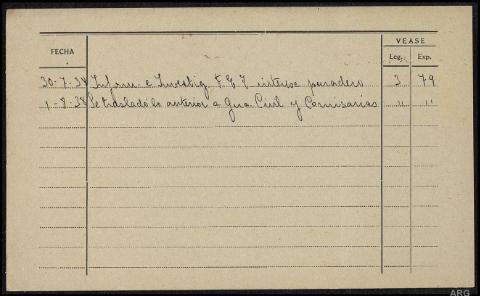 VEASE
FECHA
Leg. Exp.
30-7-38 Inform e Investig F E J interesa paradero 3 79
1-8-38 Se trasladó lo anterior a Gua Civil y Comisarias " "
ARG